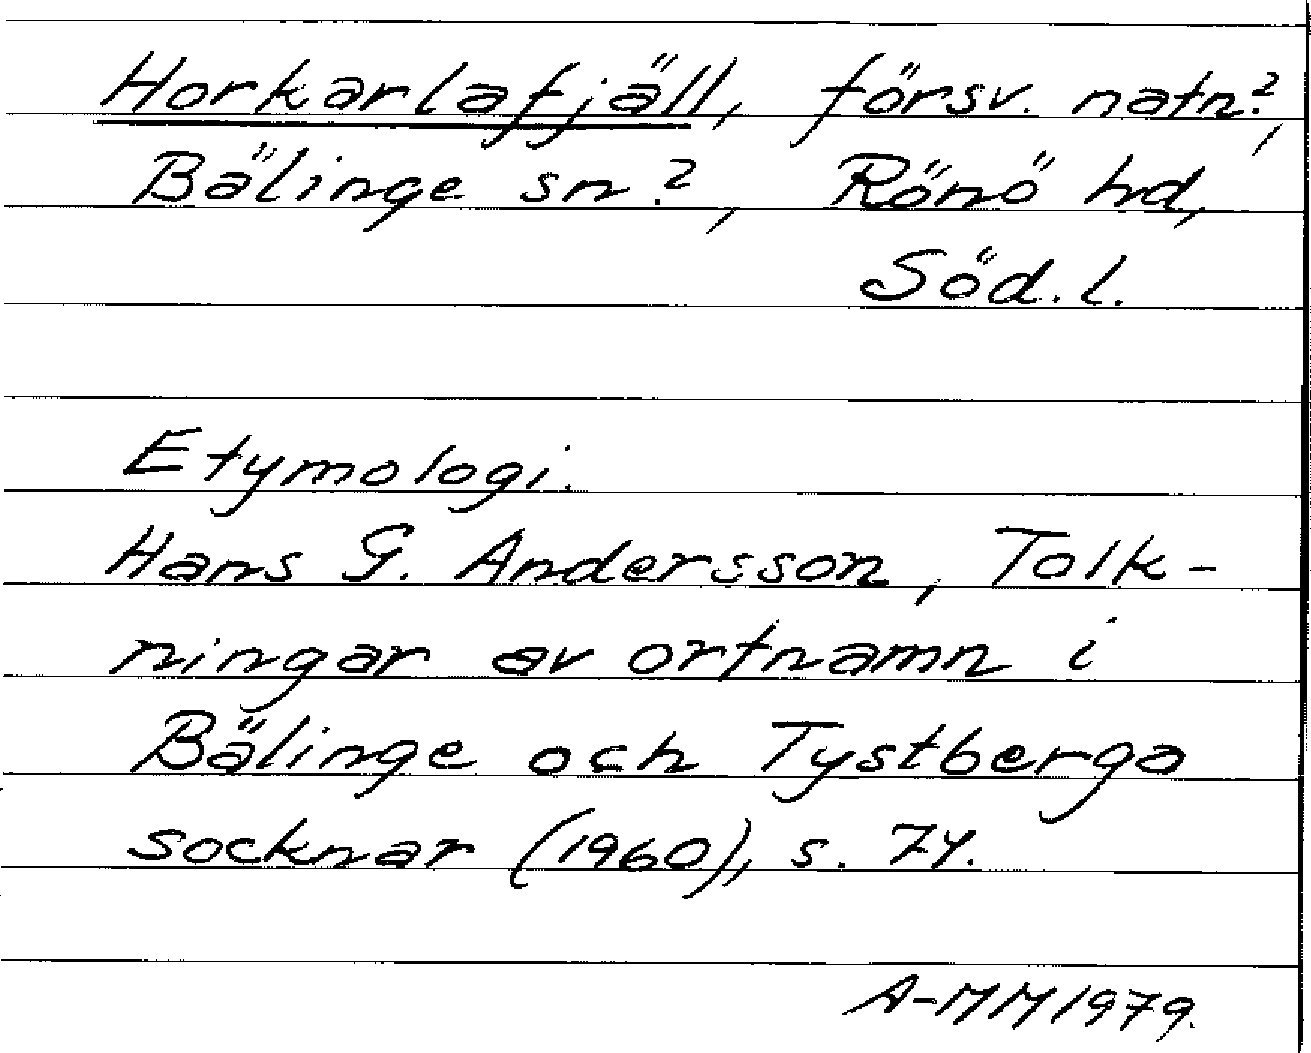 Horkarlafjäll, försv. natn.?,
Bälinge sn.?, Rönö hd,
Söd. l.
Etymologi.
Hans G. Andersson, Tolk-
ningar av ortnamn i
Bälinge och Tystberga
socknar (1960), s. 74.
A-MM 1979.